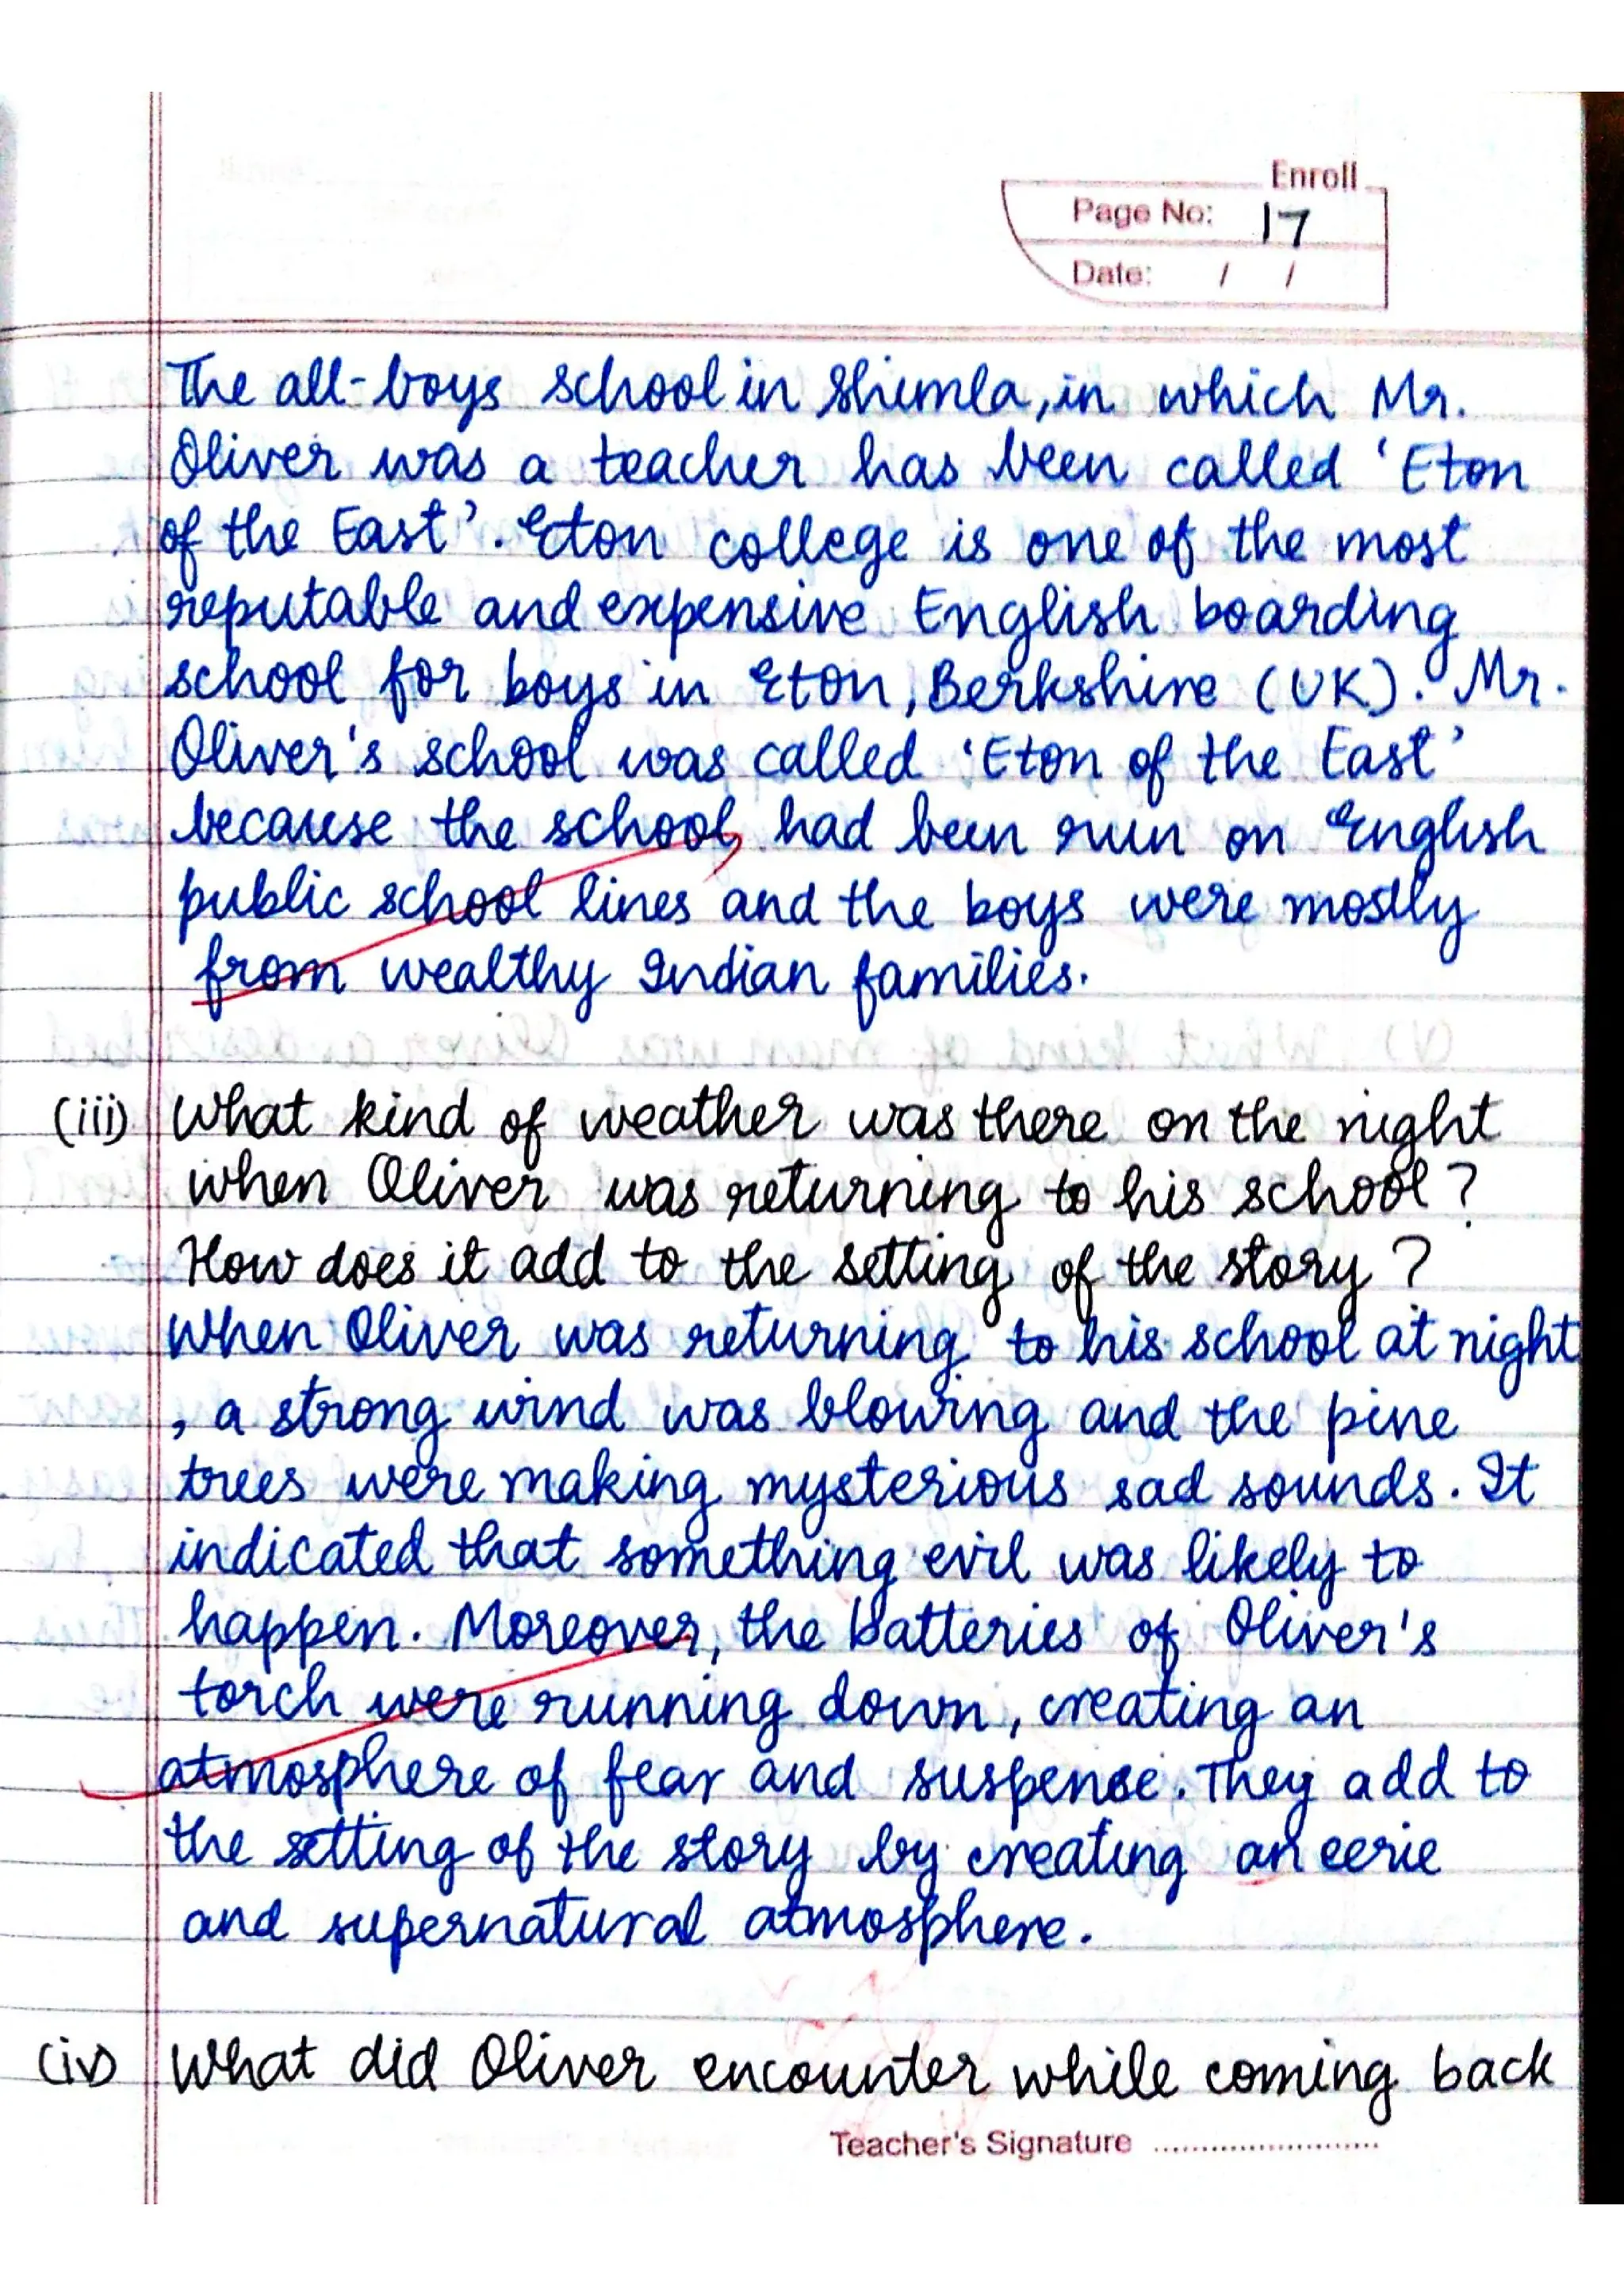 Enroll
Page No: 17
Date: / /
The all-boys school in Shimla, in which Mr.
Oliver was a teacher has been called 'Eton
of the East'. Eton college is one of the most
reputable and expensive English boarding
school for boys in Eton, Berkshire (UK). Mr.
Oliver's school was called 'Eton of the East'
because the school, had been run on English
public school lines and the boys were mostly
from wealthy Indian families.
(iii) What kind of weather was there on the night
when Oliver was returning to his school?
How does it add to the setting of the story?
When Oliver was returning to his school at night
, a strong wind was blowing and the pine
trees were making mysterious sad sounds. It
indicated that something evil was likely to
happen. Moreover, the batteries of Oliver's
torch were running down, creating an
atmosphere of fear and suspense. They add to
the setting of the story by creating an eerie
and supernatural atmosphere.
(iv) What did Oliver encounter while coming back
Teacher's Signature ........................